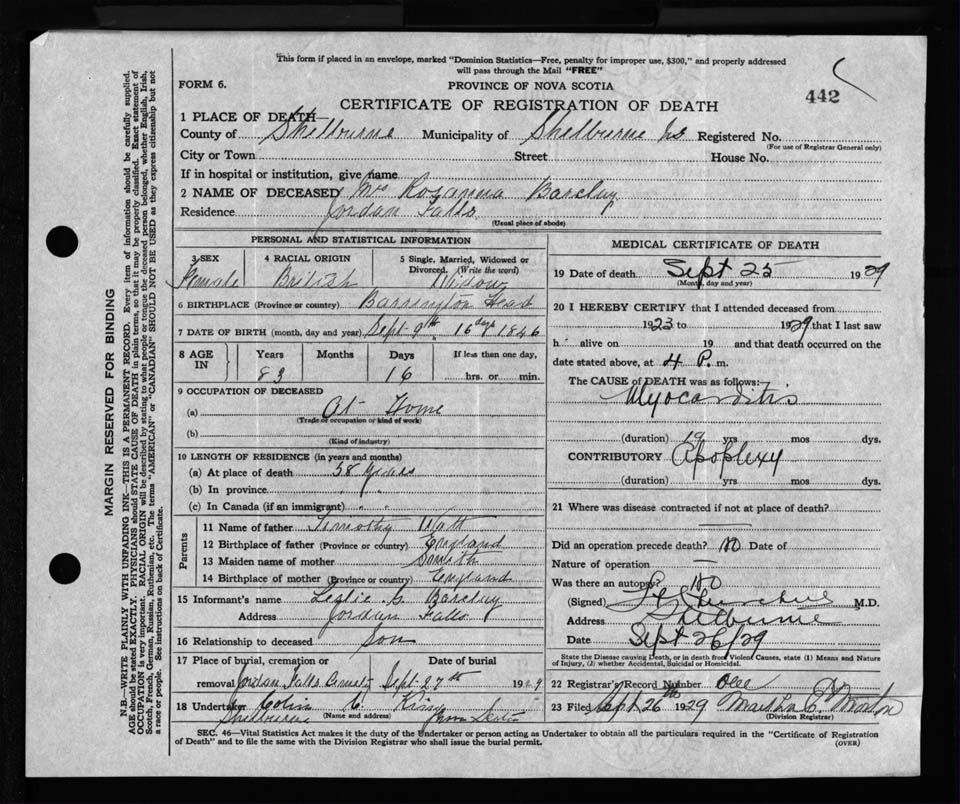 This form if placed in an envelope, marked "Dominion Statistics—Free, penalty for improper use, $300," and properly addressed
will pass through the Mail "FREE"
FORM 6.
PROVINCE OF NOVA SCOTIA
442
CERTIFICATE OF REGISTRATION OF DEATH
1 PLACE OF DEATH
County of Shelburne Municipality of Shelburne Registered No.
(For use of Registrar General only)
City or Town Street House No.
If in hospital or institution, give name
2 NAME OF DECEASED Mrs Rozanna Barclay
Residence Jordan Falls
(Usual place of abode)
PERSONAL AND STATISTICAL INFORMATION
3 SEX 4 RACIAL ORIGIN 5 Single, Married, Widowed or Divorced. (Write the word)
Female British Widow
6 BIRTHPLACE (Province or country) Barrington Head
7 DATE OF BIRTH (month, day and year) Sept 9th 16 days 1846
8 AGE IN Years Months Days If less than one day,
83 16 hrs. or min.
9 OCCUPATION OF DECEASED
(a) At Home
(Trade of occupation or kind of work)
(b)
(Kind of industry)
10 LENGTH OF RESIDENCE (in years and months)
(a) At place of death 58 years
(b) In province " "
(c) In Canada (if an immigrant) " "
Parents
11 Name of father Timothy Watt
12 Birthplace of father (Province or country) England
13 Maiden name of mother Smith
14 Birthplace of mother (Province or country) England
15 Informant's name Leslie G. Barclay
Address Jordan Falls
16 Relationship to deceased Son
17 Place of burial, cremation or Date of burial
removal Jordan Falls Sept 27th 1929
18 Undertaker Colin C.
Shelburne (Name and address) Nova Scotia
MEDICAL CERTIFICATE OF DEATH
19 Date of death Sept 25 1929
(Month, day and year)
20 I HEREBY CERTIFY that I attended deceased from
1923 to 1929 that I last saw
h alive on 19 and that death occurred on the
date stated above, at 4 P. m.
The CAUSE of DEATH was as follows:
Myocarditis
(duration) 19 yrs mos dys.
CONTRIBUTORY Apoplexy
(duration) yrs mos dys.
21 Where was disease contracted if not at place of death?
Did an operation precede death? No Date of
Nature of operation
Was there an autopsy? No
(Signed) M.D.
Address Shelburne
Date Sept 26/29
State the Disease causing Death, or in death from Violent Causes, state (1) Means and Nature
of Injury, (2) whether Accidental, Suicidal or Homicidal.
22 Registrar's Record Number
23 Filed Sept 26th 1929 Martha E. Morton
(Division Registrar)
SEC. 46—Vital Statistics Act makes it the duty of the Undertaker or person acting as Undertaker to obtain all the particulars required in the "Certificate of Registration
of Death" and to file the same with the Division Registrar who shall issue the burial permit.
(OVER)
MARGIN RESERVED FOR BINDING
N.B.—WRITE PLAINLY WITH UNFADING INK—THIS IS A PERMANENT RECORD. Every item of information should be carefully supplied.
AGE should be stated EXACTLY. PHYSICIANS should STATE CAUSE OF DEATH in plain terms, so that it may be properly classified. Exact statement of
OCCUPATION is very important. RACIAL ORIGIN will be described by stating to what people or tongue the deceased person belonged, whether English, Irish,
Scotch, French, German, Russian, Ruthenian, etc. The terms "AMERICAN" or "CANADIAN" SHOULD NOT BE USED as they express citizenship but not
a race or people. See instructions on back of Certificate.